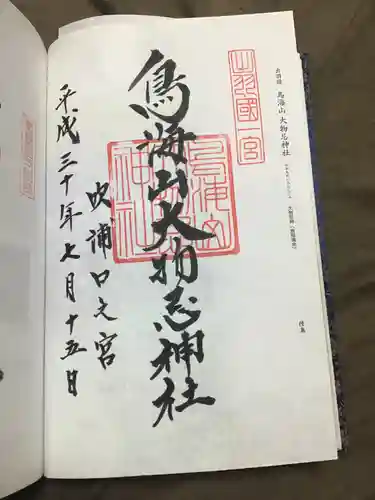 出羽國 鳥海山 大物忌神社
出羽國一宮
鳥海山大物忌神社
吹浦口之宮
平成三十年七月十五日